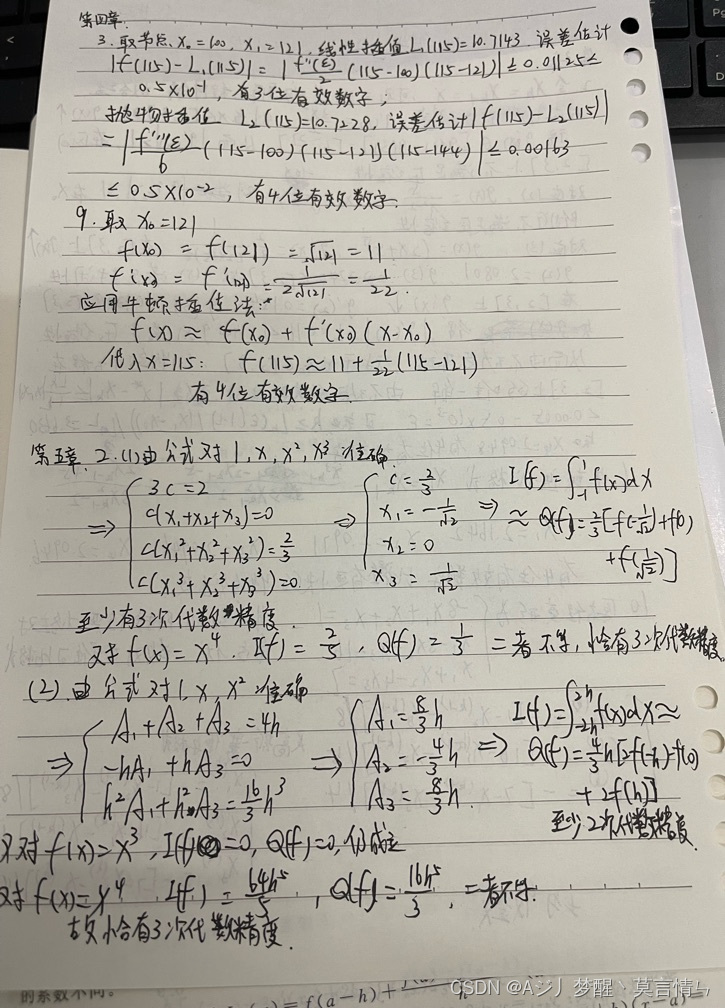 第四章.
3. 取节点 x₀=100, x₁=121, 线性插值 L₁(115)=10.7143. 误差估计
|f(115)-L₁(115)| = |f''(ξ)/2 (115-100)(115-121)| ≤ 0.01125 ≤
0.5×10⁻¹, 有3位有效数字;
抛物插值 L₂(115)=10.7228, 误差估计|f(115)-L₂(115)|
= |f'''(ξ)/6 (115-100)(115-121)(115-144)| ≤ 0.00163
≤ 0.5×10⁻², 有4位有效数字.
9. 取 x₀=121
f(x₀) = f(121) = √121 = 11
f'(x₀) = f'(121) = 1/(2√121) = 1/22.
应用牛顿插值法:
f(x) ≈ f(x₀) + f'(x₀)(x-x₀)
代入x=115: f(115) ≈ 11 + 1/22 (115-121)
有4位有效数字.
第五章. 2. (1)由公式对 1, x, x², x³ 准确.
⇒ { 3c=2 ⇒ { c=2/3 I(f)=∫₋₁¹ f(x)dx
c(x₁+x₂+x₃)=0 x₁=-1/√2 ⇒ ≈ Q(f)=2/3[f(-1/√2)+f(0)
c(x₁²+x₂²+x₃²)=2/3 x₂=0 +f(1/√2)]
c(x₁³+x₂³+x₃³)=0. x₃=1/√2
至少有3次代数精度.
又对 f(x)=x⁴. I(f)=2/5, Q(f)=1/3 二者不等, 恰有3次代数精度.
(2). 由公式对1, x, x² 准确
⇒ { A₁+A₂+A₃=4h ⇒ { A₁=8/3 h I(f)=∫₋₂ₕ²ʰ f(x)dx ≈
-hA₁+hA₃=0 A₂=-4/3 h ⇒ Q(f)=4/3 h[2f(-h)-f(0)
h²A₁+h²A₃=16/3 h³ A₃=8/3 h. +2f(h)]
至少2次代数精度.
又对 f(x)=x³, I(f)=0, Q(f)=0, 仍成立
对 f(x)=x⁴ I(f)=64h⁵/5, Q(f)=16h⁵/3, 二者不等.
故恰有3次代数精度.
的系数不同。
CSDN @Aジ丿梦醒﹑莫言情ㄣ